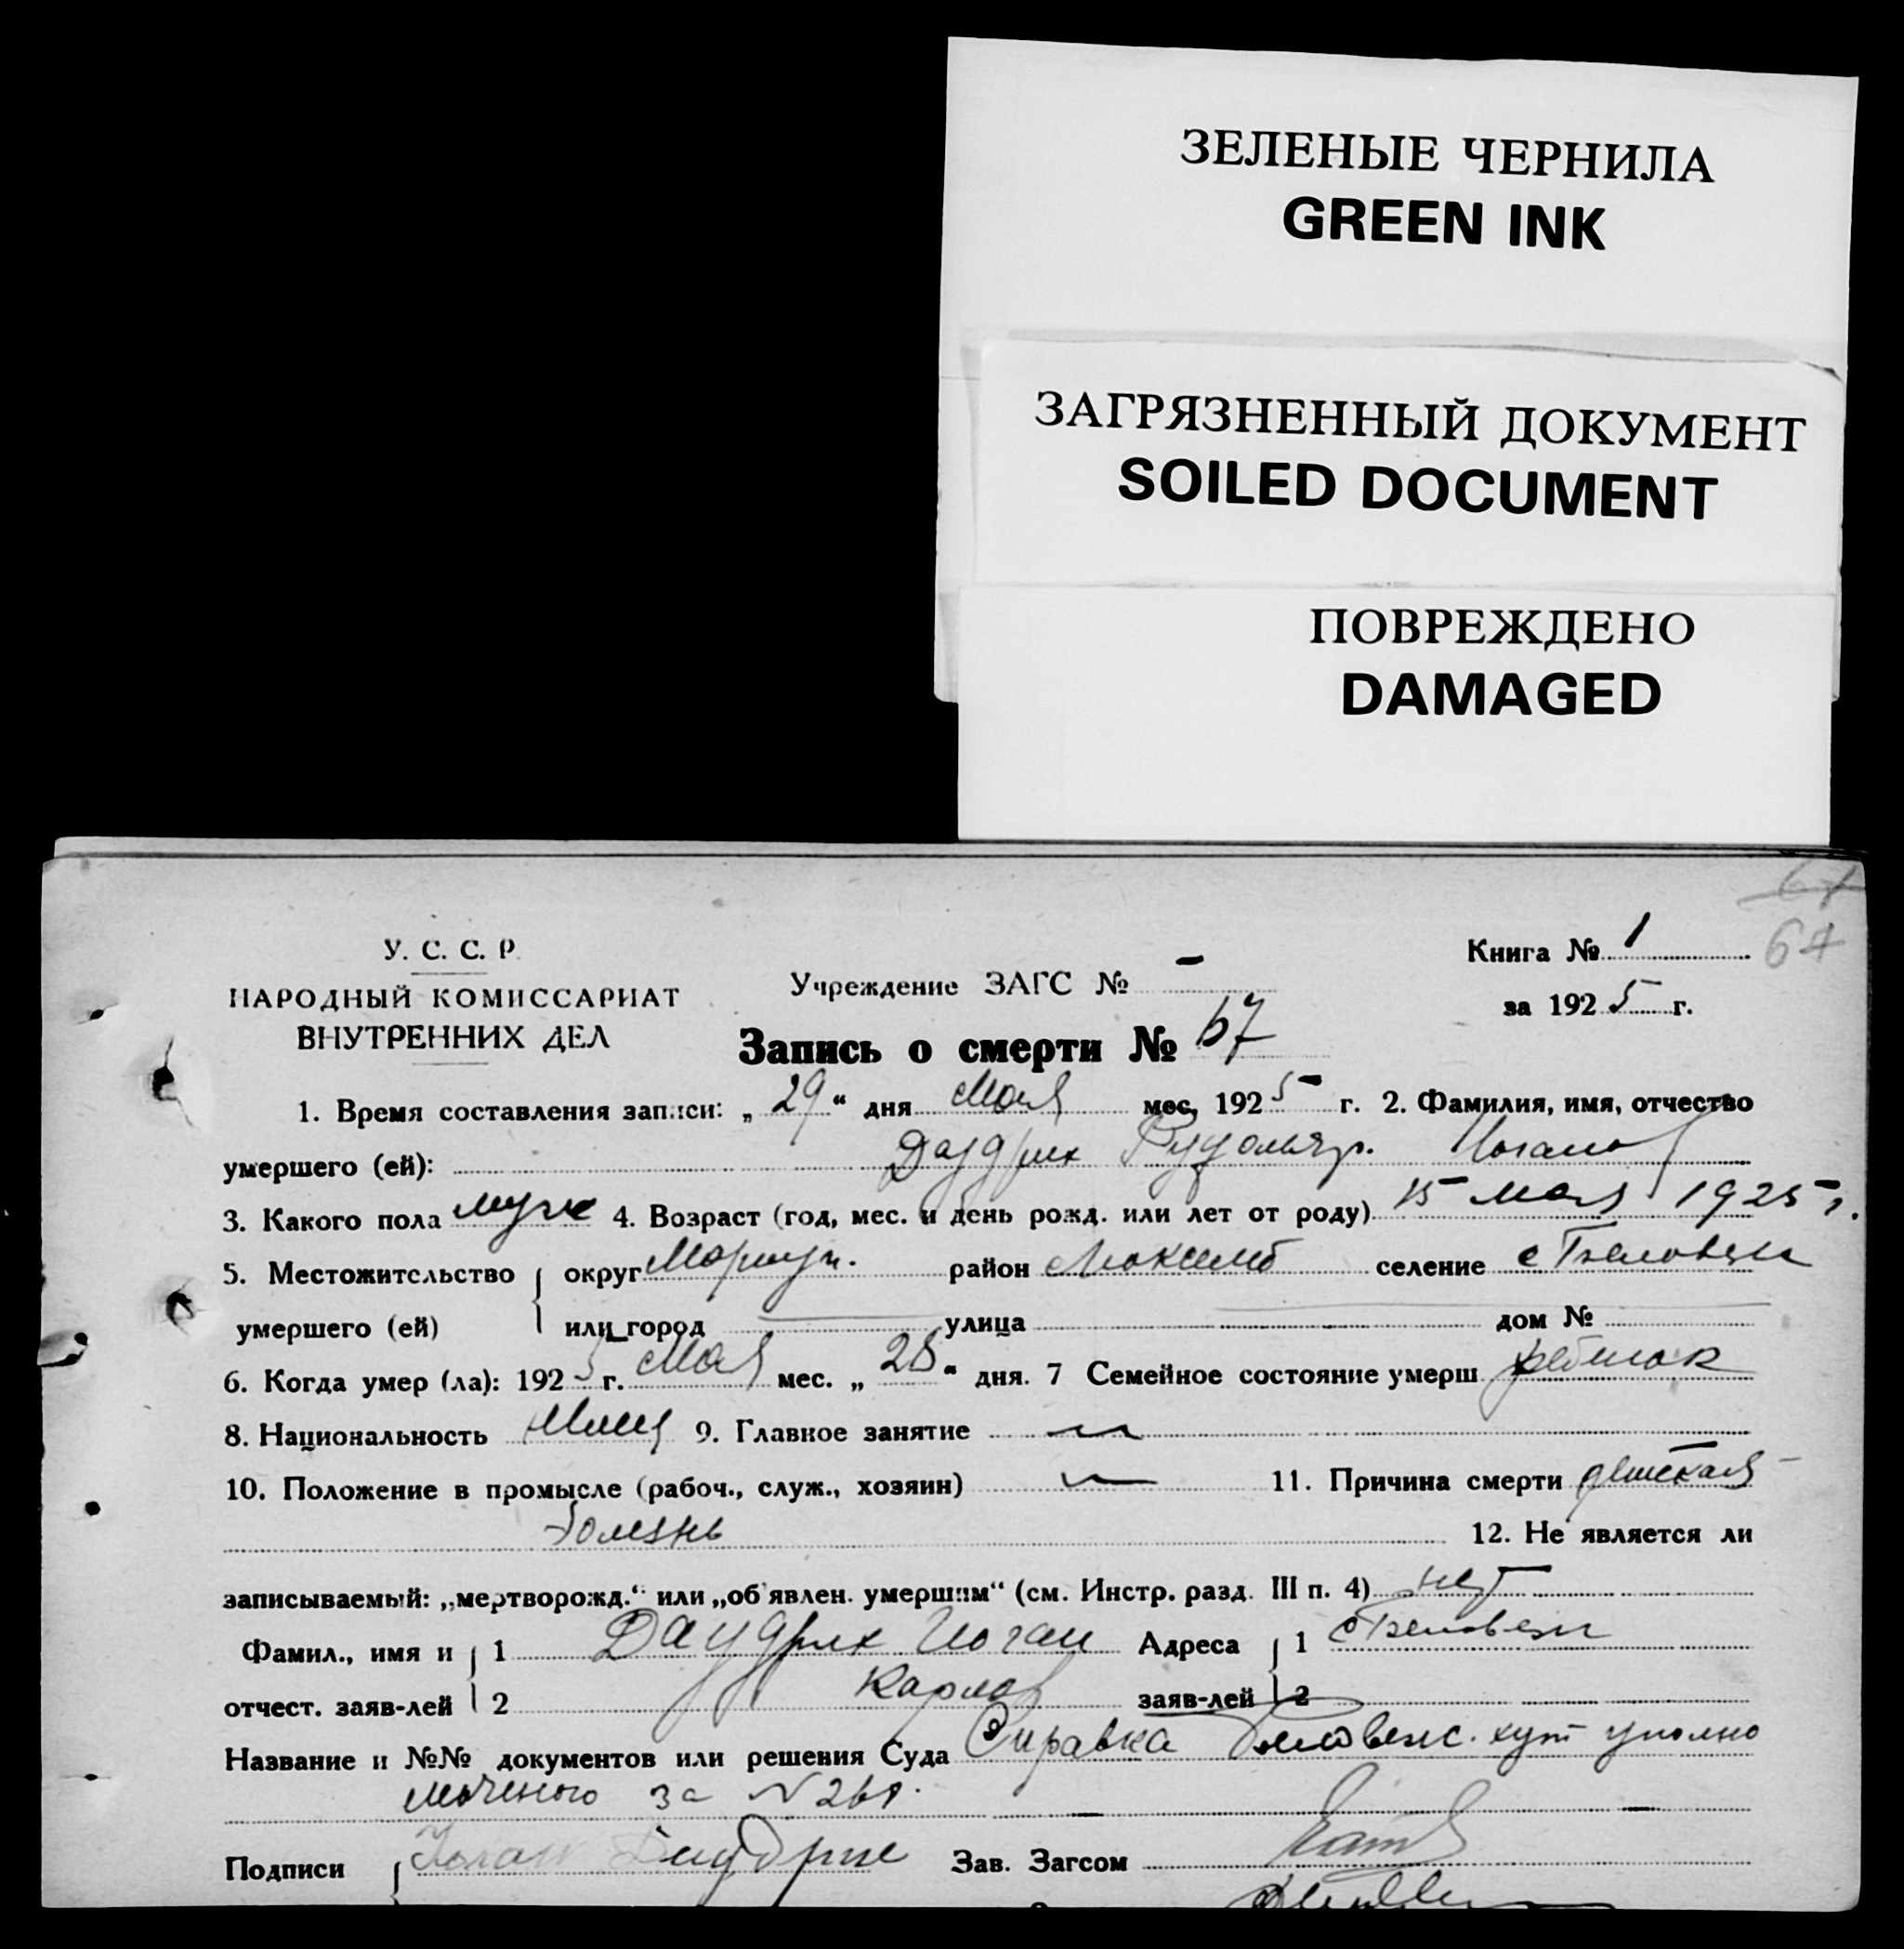 ЗЕЛЕНЫЕ ЧЕРНИЛА
GREEN INK
ЗАГРЯЗНЕННЫЙ ДОКУМЕНТ
SOILED DOCUMENT
ПОВРЕЖДЕНО
DAMAGED
67
64
У. С. С. Р.
НАРОДНЫЙ КОМИССАРИАТ
ВНУТРЕННИХ ДЕЛ
Учреждение ЗАГС № -
Книга № 1
за 1925 г.
Запись о смерти № 67
1. Время составления записи: „29“ дня Мая мес. 1925 г. 2. Фамилия, имя, отчество
умершего (ей): Даудрих Рудольф. Иоганов
3. Какого пола муж 4. Возраст (год, мес. и день рожд. или лет от роду) 15 мая 1925 г.
5. Местожительство округ Мариуп. район селение с
умершего (ей) или город улица дом №
6. Когда умер (ла): 1925 г. Мая мес. „28“ дня. 7 Семейное состояние умерш ребенок
8. Национальность немец 9. Главное занятие —
10. Положение в промысле (рабоч., служ., хозяин) — 11. Причина смерти детская
болезнь 12. Не является ли
записываемый: „мертворожд.“ или „об'явлен. умершим“ (см. Инстр. разд. III п. 4) нет
Фамил., имя и 1 Даудрих Иоган Адреса 1
отчест. заяв-лей 2 Карлов заяв-лей 2
Название и №№ документов или решения Суда Справка хут уполно
моченого за №
Подписи Иоган Даудрих Зав. Загсом